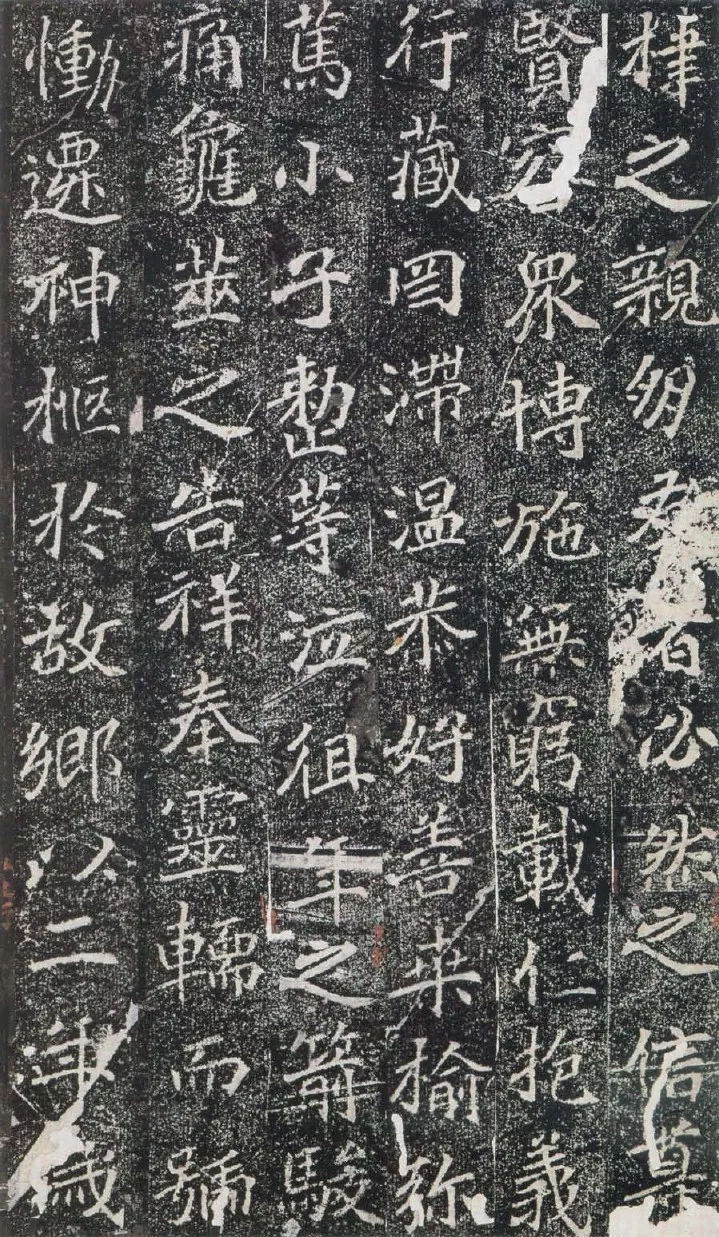 棣之親朋者必然之信尊
賢容眾博施無窮載仁抱義
行藏罔滯温恭好善桑榆弥
篤小子等泣徂年之箭駿
痛龜筮之告祥奉靈轜而號
慟遷神柩於故鄉以二年歲